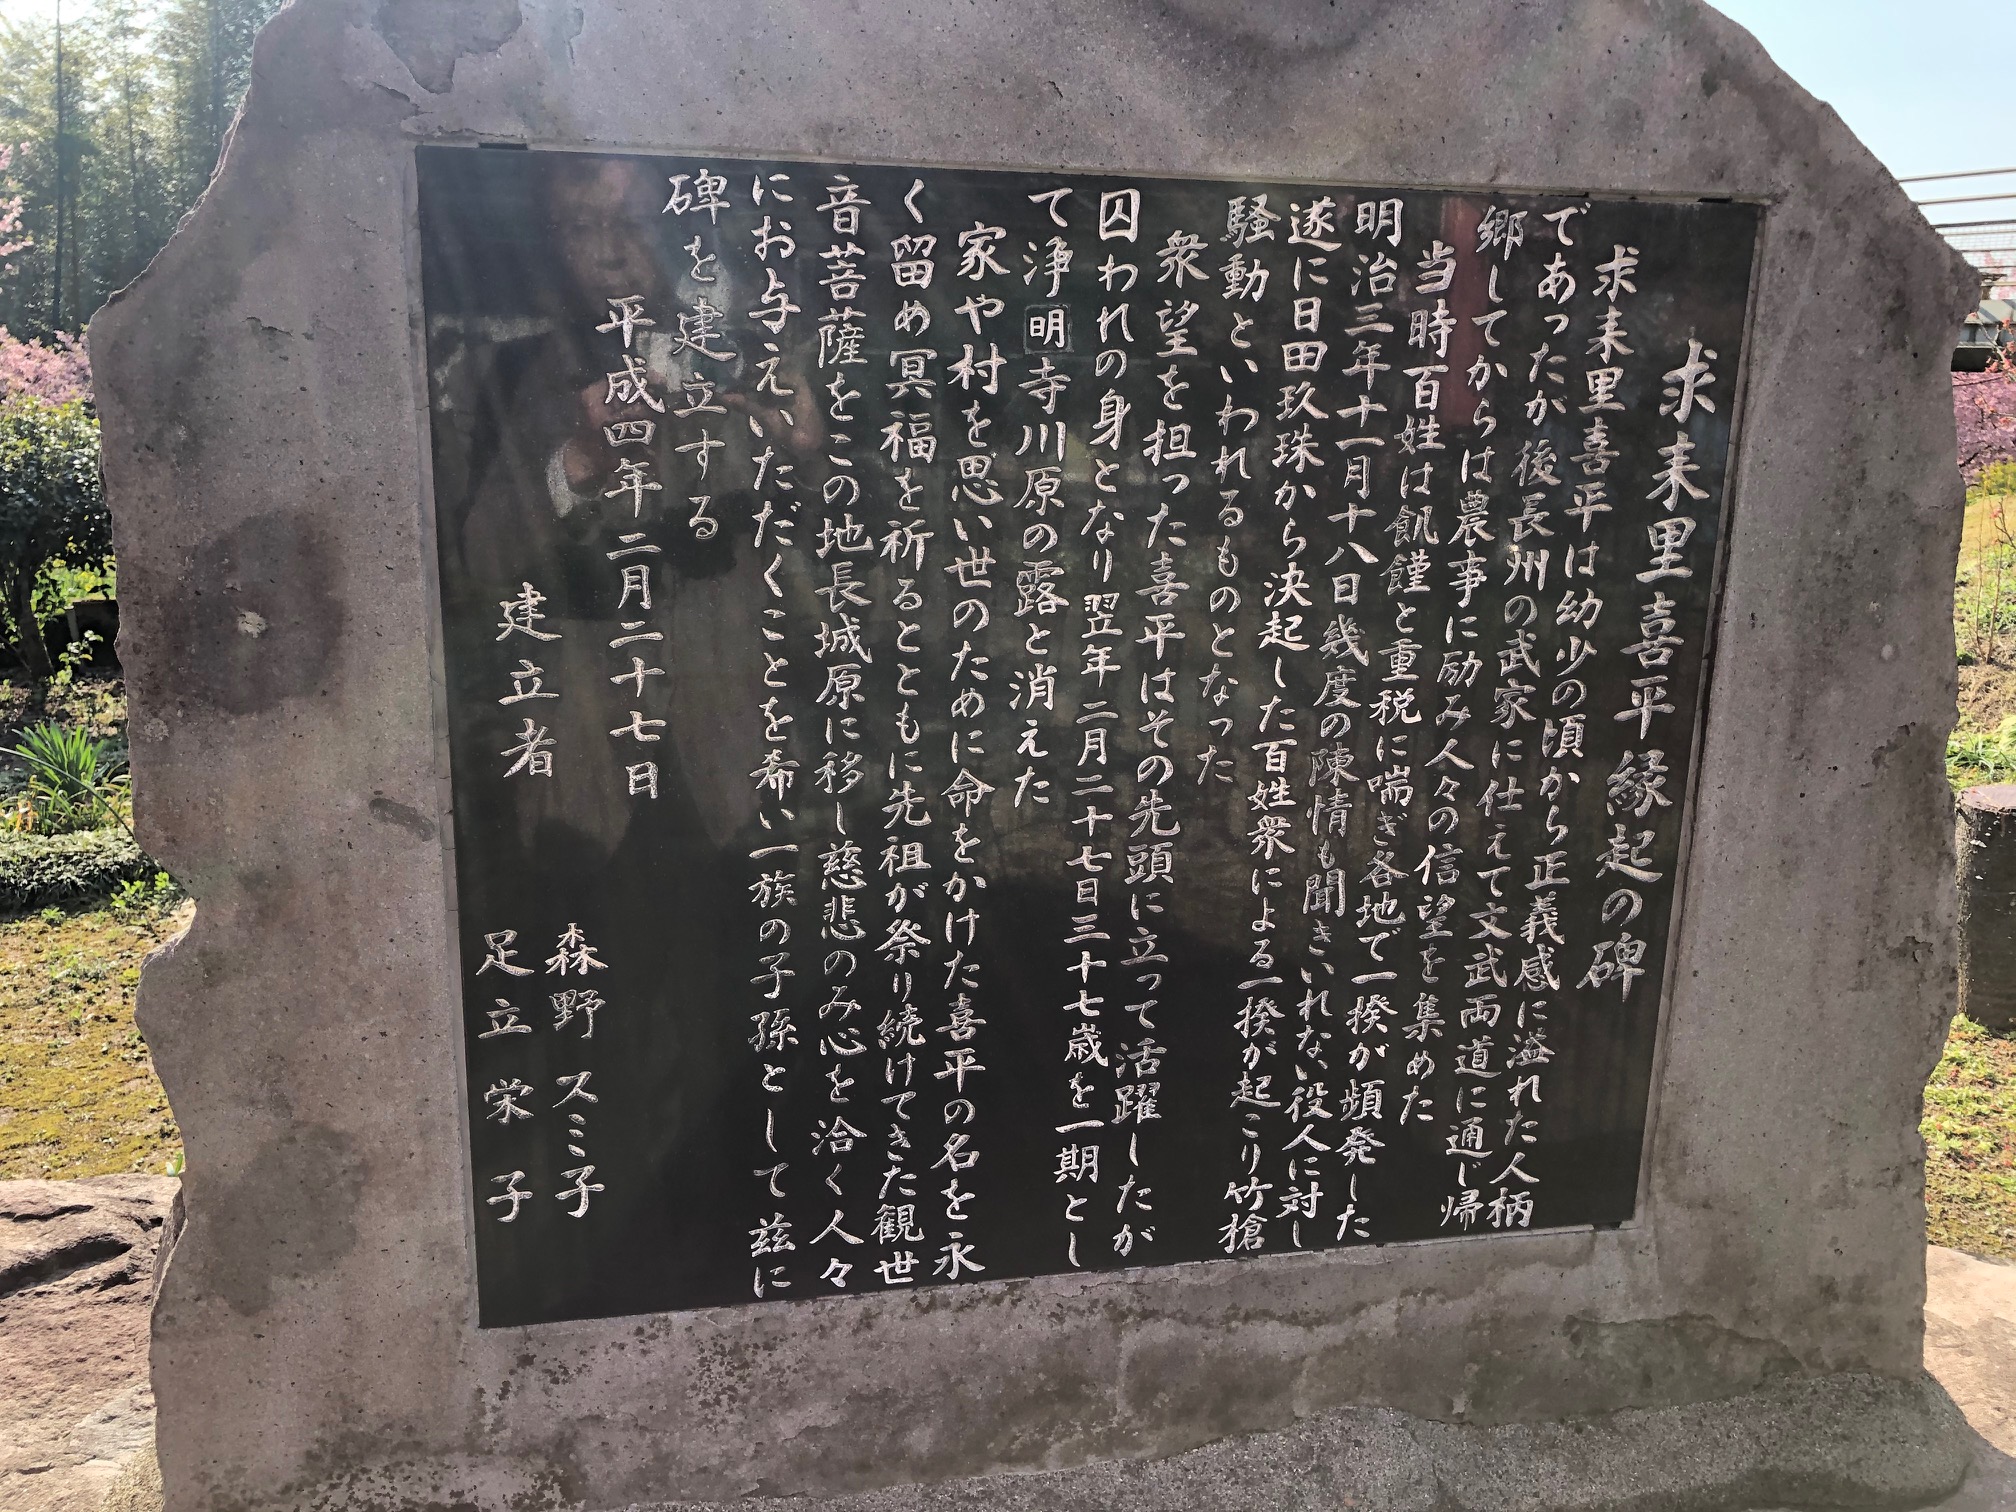 求来里喜平縁起の碑
求来里喜平は幼少の頃から正義感に溢れた人柄
であったが後長州の武家に仕えて文武両道に通じ帰
郷してからは農事に励み人々の信望を集めた
当時百姓は飢饉と重税に喘ぎ各地で一揆が頻発した
明治三年十一月十八日幾度の陳情も聞きいれない役人に対し
遂に日田玖珠から決起した百姓衆による一揆が起こり竹槍
騒動といわれるものとなった
衆望を担った喜平はその先頭に立って活躍したが
囚われの身となり翌年二月二十七日三十七歳を一期とし
て浄明寺川原の露と消えた
家や村を思い世のために命をかけた喜平の名を永
く留め冥福を祈るとともに先祖が祭り続けてきた観世
音菩薩をこの地長城原に移し慈悲のみ心を洽く人々
にお与えいただくことを希い一族の子孫として茲に
碑を建立する
平成四年二月二十七日
建立者
森野スミ子
足立栄子